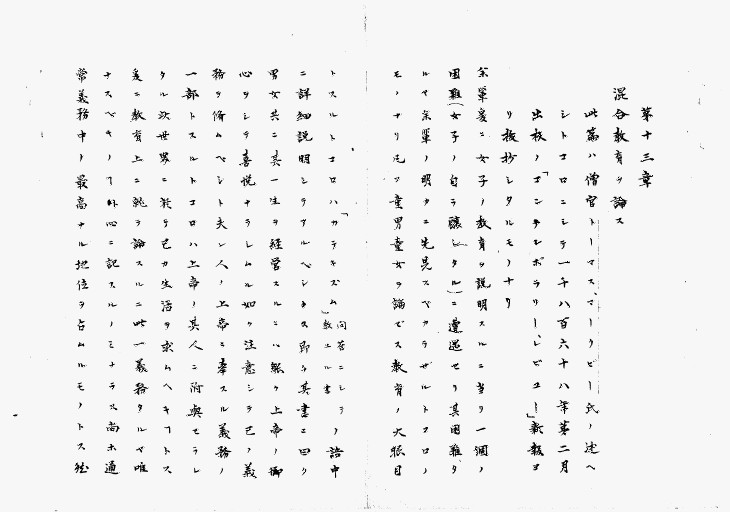 第十三章
混合教育ヲ論ス
此篇ハ僧官トーマス、マークビー氏ノ述ヘ
シトコロニシテ一千八百六十八年第二月
出板ノ「コンテンポラリー、レビユー」新報ヨ
リ抜抄シタルモノナリ
余輩爰ニ女子ノ教育ヲ説明スルニ当リ一個ノ
困難(女子ノ自ラ醸シタル)ニ遭遇セリ其困難タ
ルヤ余輩ノ明カニ先見スベカラザルトコロノ
モノナリ凡ソ童男童女ヲ論ゼス教育ノ大眼目
トスルトコロハ「カテキズム」問答ニシテ教エル書ノ語中
ニ詳細説明シテアルベシ
其書ニ曰ク
男女共ニ其一生ヲ経営スルニハ
上帝ノ御
心ヲシテ喜悦ナラシムル如ク注意シテ己ノ義
務ヲ脩ムベシト夫レ人ノ上帝ニ奉スル義務ノ
一部トスルトコロハ上帝ノ其人ニ附与セラレ
タル次世界ニ於テ己カ生活ヲ求ムヘキコトス
爰ニ教育上ニ就テ論スルニ此一義務タルヤ唯
ナスベキノ
心ニ記スルノミナラス尚ホ通
常義務中ノ最高ナル地位ヲ占ムルモノトス